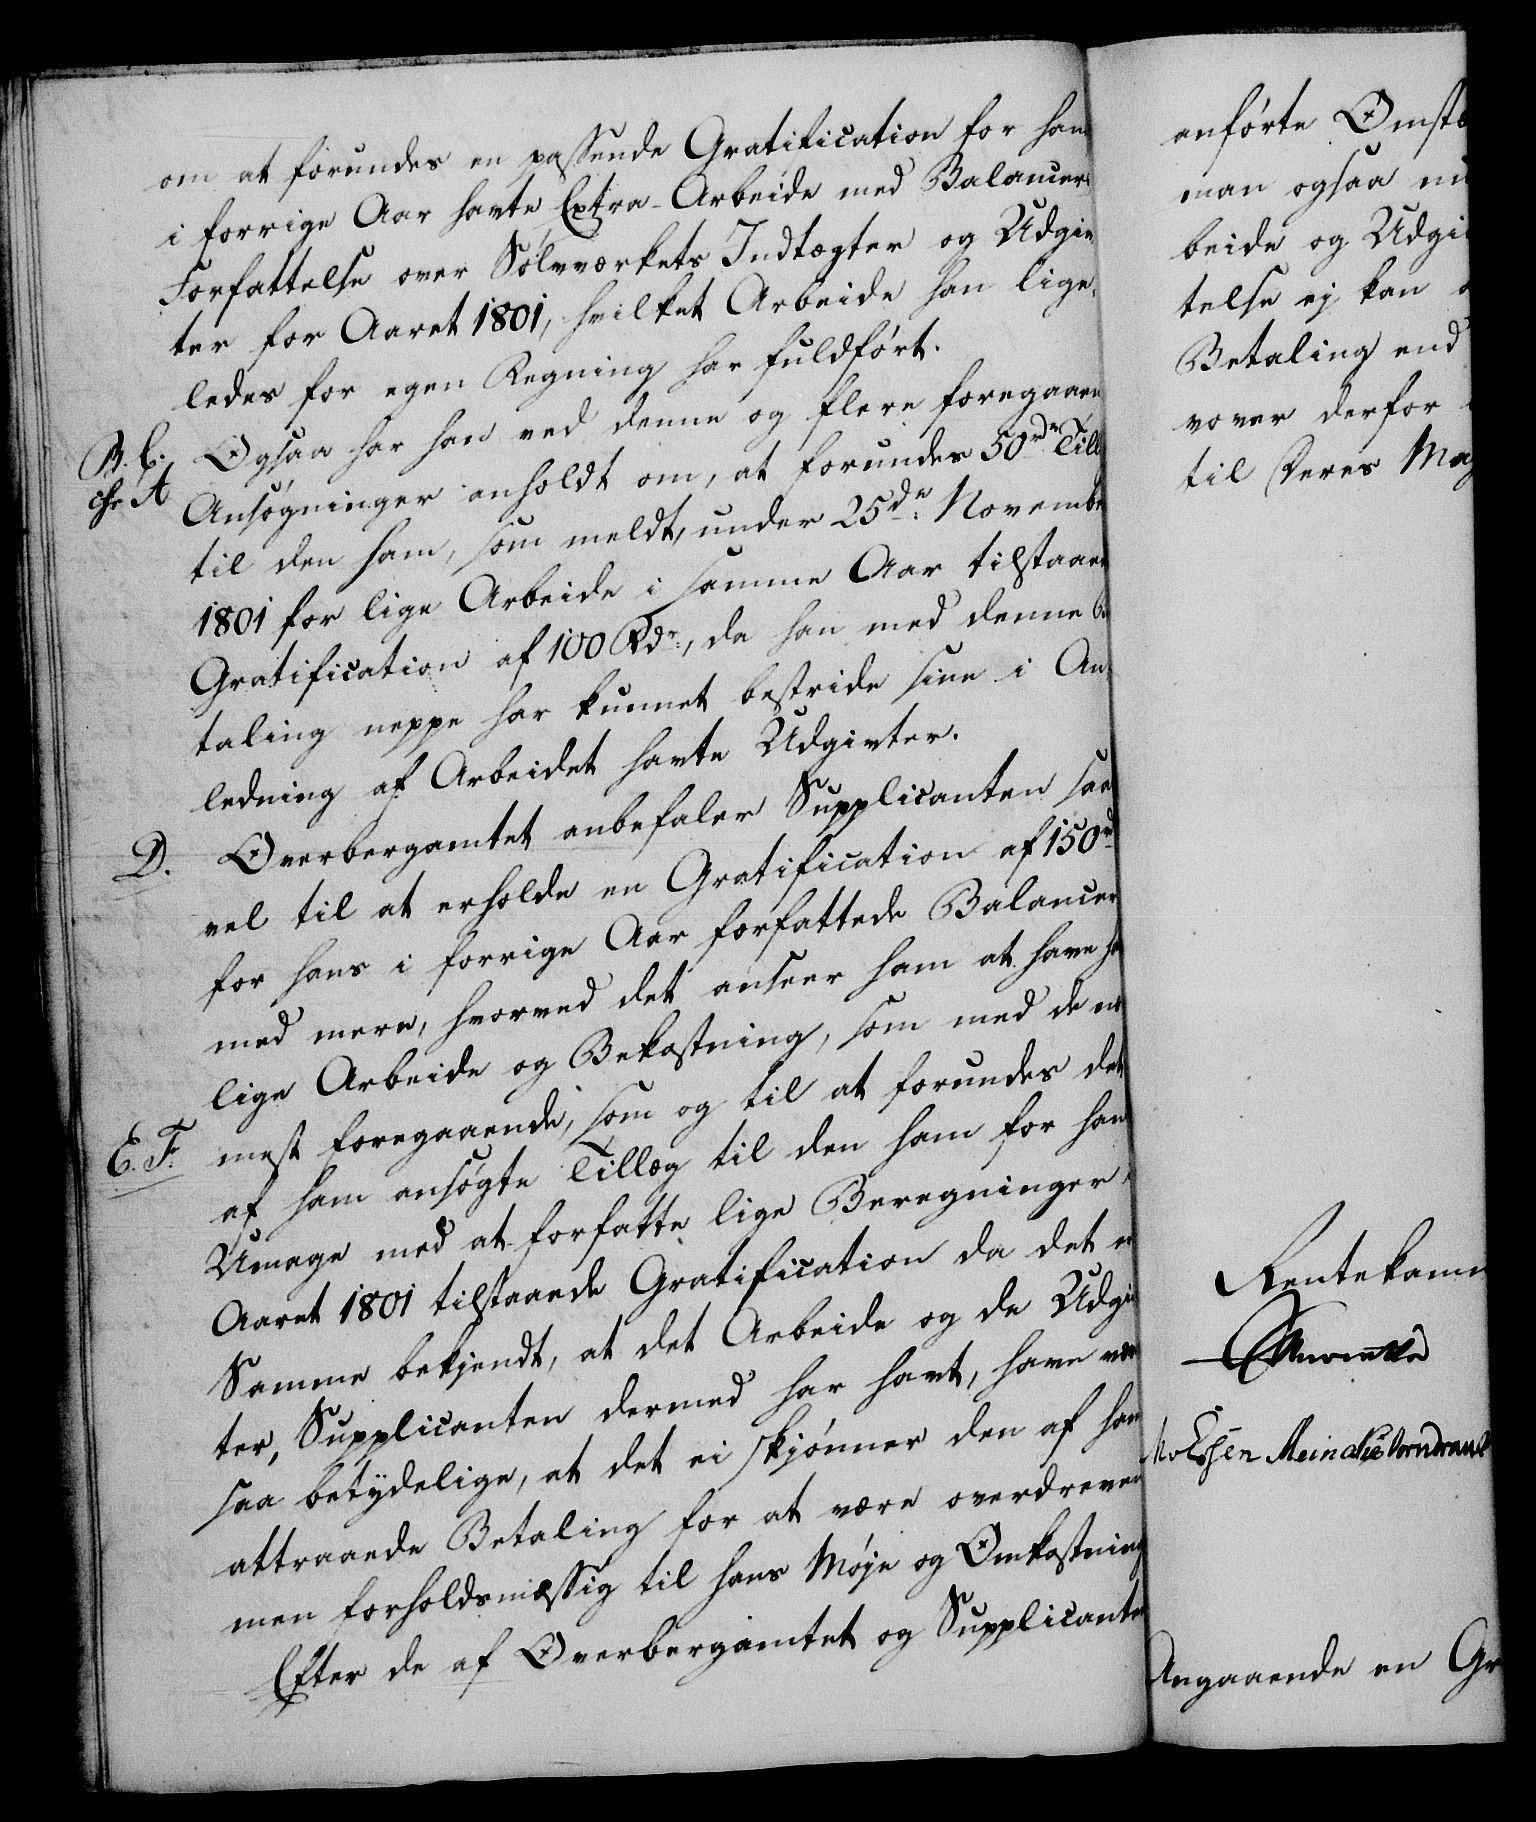 om at forundes en passende Gratification for han
i forrige Aar havte Extra-Arbeide med Balancers
Forfattelse over Sølvværkets Indtægter og Udgiv
ter for Aaret 1801, hvilket Arbeide han lige,
ledes for egen Regning har fuldført.
B. C. Ogsaa har han ved denne og flere foregaaen
cfr A Ansøgninger anholdt om, at forundes 50 rdr Till
til den ham, som meldt, under 25de November
1801 for lige Arbeide i samme Aar tilstaaen
Gratification af 100 Rdr, da han med denne Be
taling neppe har kunnet bestride sine i An,
ledning af Arbeidet havte Udgivter.
D. Overbergamtet anbefaler Supplicanten saa
vel til at erholde en Gratification af 150 rd
for hans i forrige Aar forfattede Balancer
med mere, hvorved det anseer ham at have ha
lige Arbeide og Bekostning, som med de næ
E. F. mest foregaaende, som og til at forundes det
af ham ansøgte Tillæg til den ham for han
Umage med at forfatte lige Beregninger,
Aaret 1801 tilstaaede Gratification da det er
Samme bekjendt, at det Arbeide og de Udgiv
ter, Supplicanten dermed har havt, have vær
saa betydelige, at det ei skjønner den af ham
attraaede Betaling for at være overdreven
men forholdsmæssig til hans Møje og Omkostning
Efter de af Overbergamtet og Supplicanten
anførte Omst
man ogsaa
beide og Udgi
telse ej kan
Betaling end
vover derfor
til Deres Maj
Rentekam
Angaaende en Gr